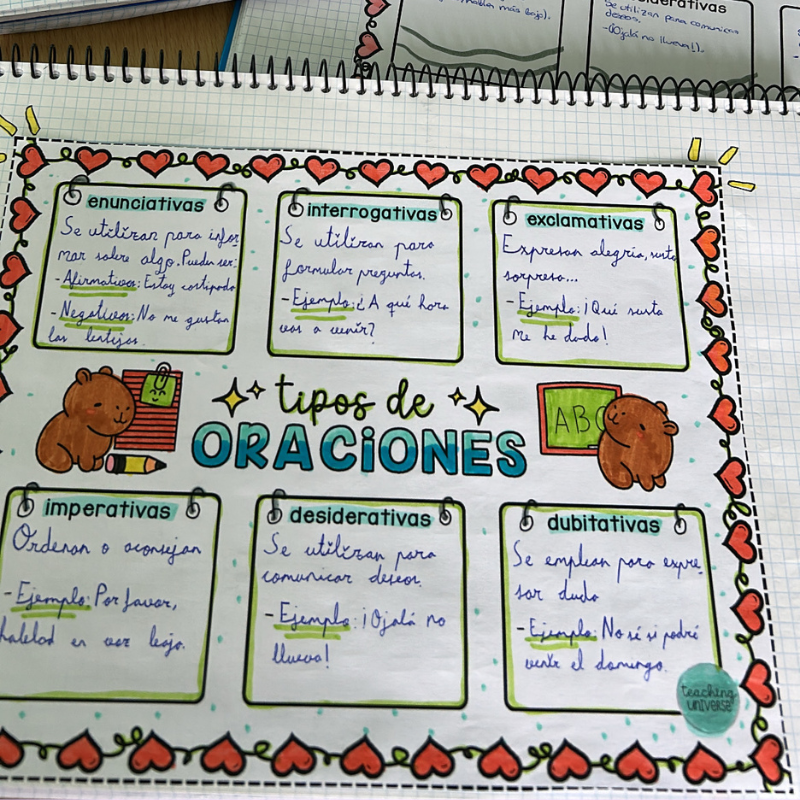 más bajo).
siderativas
Se utilizan para comunicar
deseos.
-(¡Ojalá no llueva!).
enunciativas
Se utilizan para infor
mar sobre algo. Pueden ser:
-Afirmativas: Estoy costipado
-Negativas: No me gustan
las lentejas.
interrogativas
Se utilizan para
formular preguntas.
-Ejemplo: ¿A qué hora
vas a venir?
exclamativas
Expresan alegría, susto
sorpresa...
-Ejemplo: ¡Qué susto
me he dado!
tipos de
ORACIONES
ABC
imperativas
Ordenan o aconsejan
-Ejemplo: Por favor,
hablad en voz baja.
desiderativas
Se utilizan para
comunicar deseos.
-Ejemplo: ¡Ojalá no
llueva!
dubitativas
Se emplean para expre-
sar duda
-Ejemplo: No sé si podré
venir el domingo.
teaching
UNIVERSE